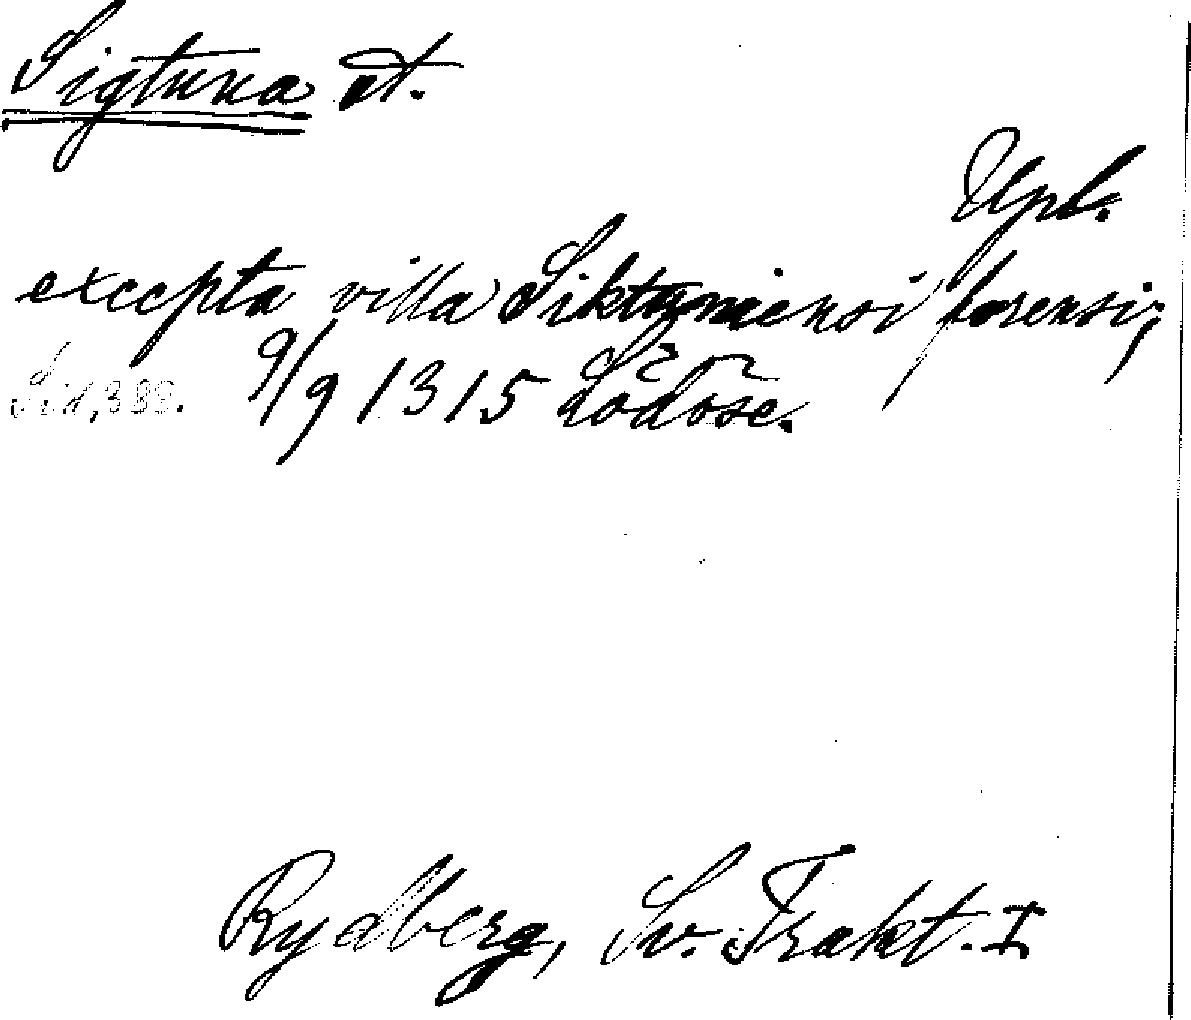 Sigtuna st.
Upl.
excepta villa Siktuniensi forensi;
Sid, 389. 9/9 1315 Lödöse.
Rydberg, Sv. Trakt. I